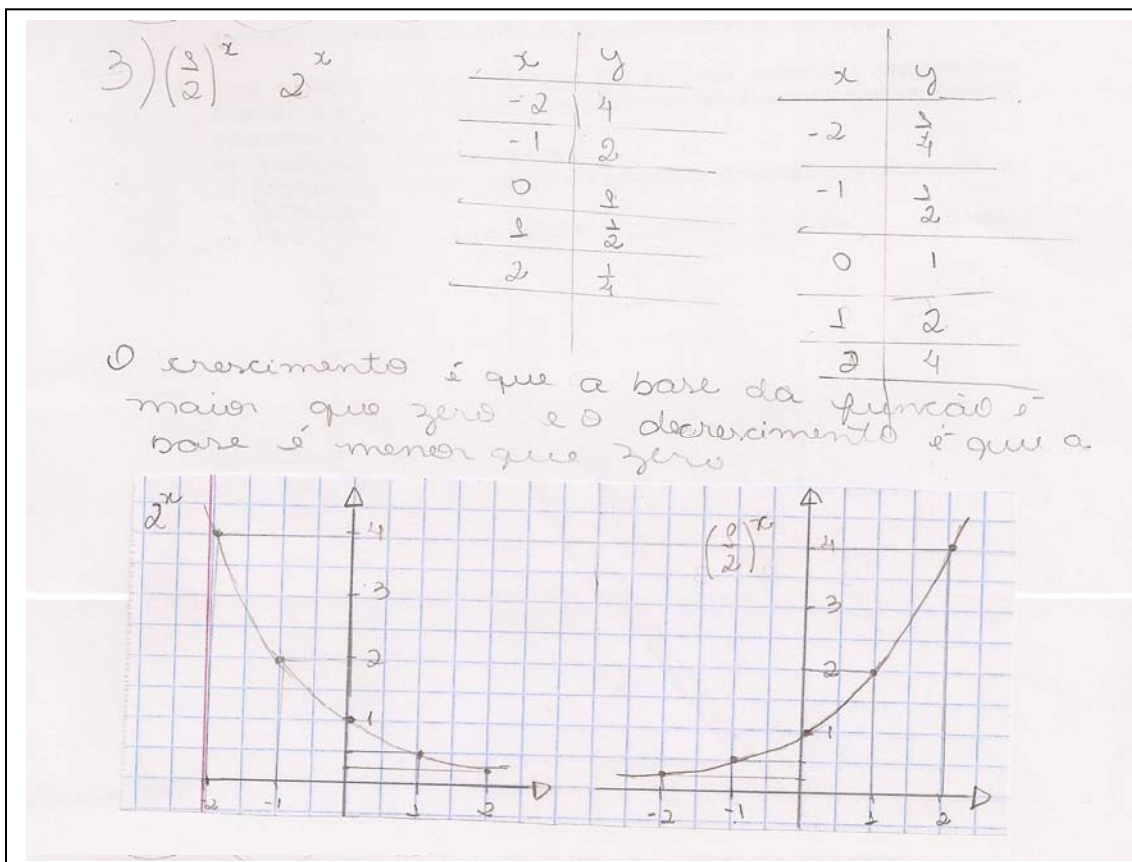 3) (1/2)^x 2^x
x y
-2 4
-1 2
0 1
1 1/2
2 1/4
x y
-2 1/4
-1 1/2
0 1
1 2
2 4
O crescimento é que a base da função é
maior que zero e o decrescimento é que a
base é menor que zero
2^x
4
3
2
1
-2 -1 1 2
(1/2)^x
4
3
2
1
-2 -1 1 2